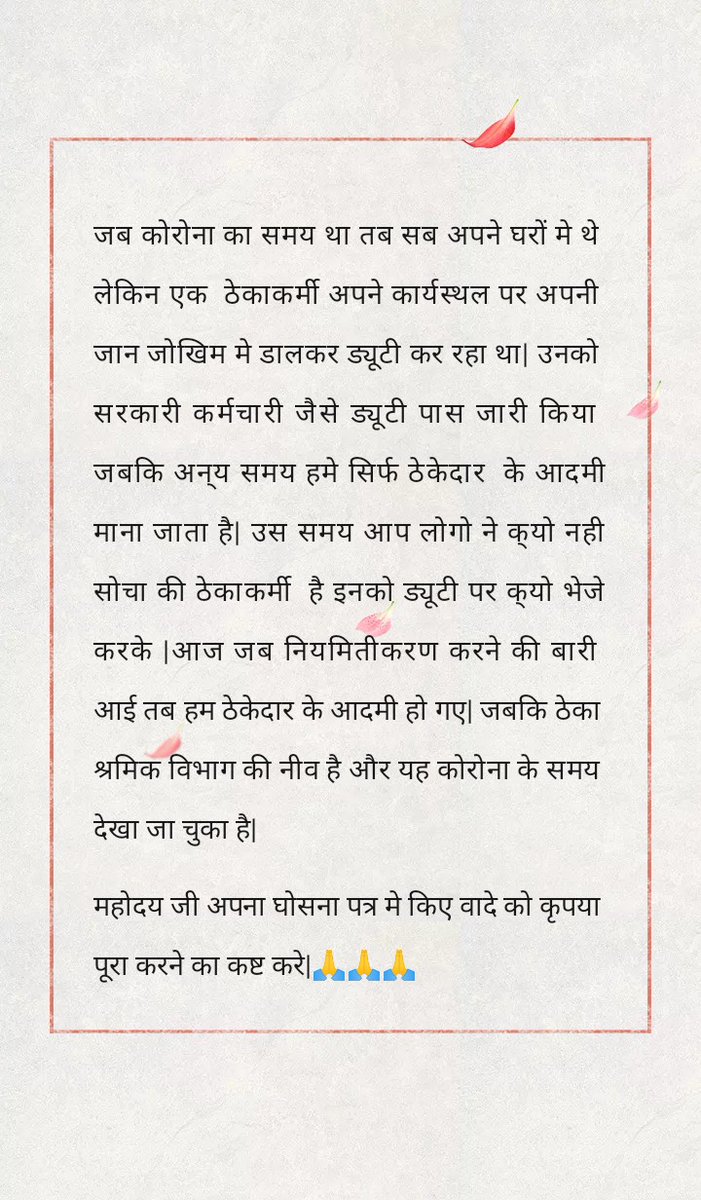 जब कोरोना का समय था तब सब अपने घरों मे थे
लेकिन एक  ठेकाकर्मी अपने कार्यस्थल पर अपनी
जान जोखिम मे डालकर ड्यूटी कर रहा था| उनको
सरकारी कर्मचारी जैसे ड्यूटी पास जारी किया
जबकि अन्‌य समय हमे सिर्फ ठेकेदार  के आदमी
माना जाता है| उस समय आप लोगो ने क्‌यो नही
सोचा की ठेकाकर्मी  है इनको ड्यूटी पर क्‌यो भेजे
करके |आज जब नियमितीकरण करने की बारी
आई तब हम ठेकेदार के आदमी हो गए| जबकि ठेका
श्रमिक विभाग की नीव है और यह कोरोना के समय
देखा जा चुका है|
महोदय जी अपना घोसना पत्र मे किए वादे को कृपया
पूरा करने का कष्ट करे|🙏🙏🙏